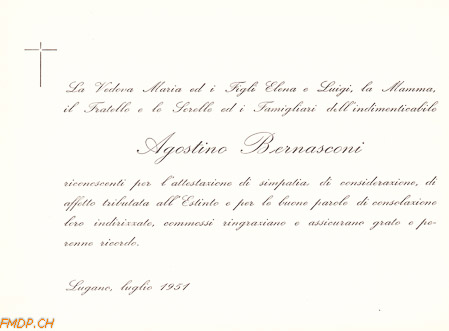 La Vedova Maria ed i Figli Elena e Luigi, la Mamma,
il Fratello e le Sorelle ed i Famigliari dell'indimenticabile
Agostino Bernasconi
riconoscenti per l'attestazione di simpatia, di considerazione, di
affetto tributata all'Estinto e per le buone parole di consolazione
loro indirizzate, commossi ringraziano e assicurano grato e pe-
renne ricordo.
Lugano, luglio 1951
FMDP.CH